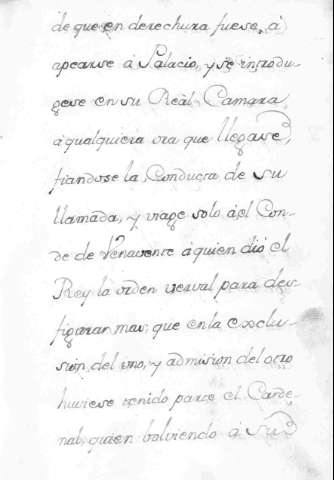 de que en derechura fuese, á
apearse á Palacio, y se introdu-
gese en su Real Camara,
á qualquiera ora que llegase,
fiandose la Conducta de su
llamada, y viage solo á el Con-
de de Venavente á quien dió el
Rey la orden verval para des-
figurar mas, que en la exclu-
sion del uno, y admision del otro
huviese tenido parte el Carde-
nal, quien bolviendo á su